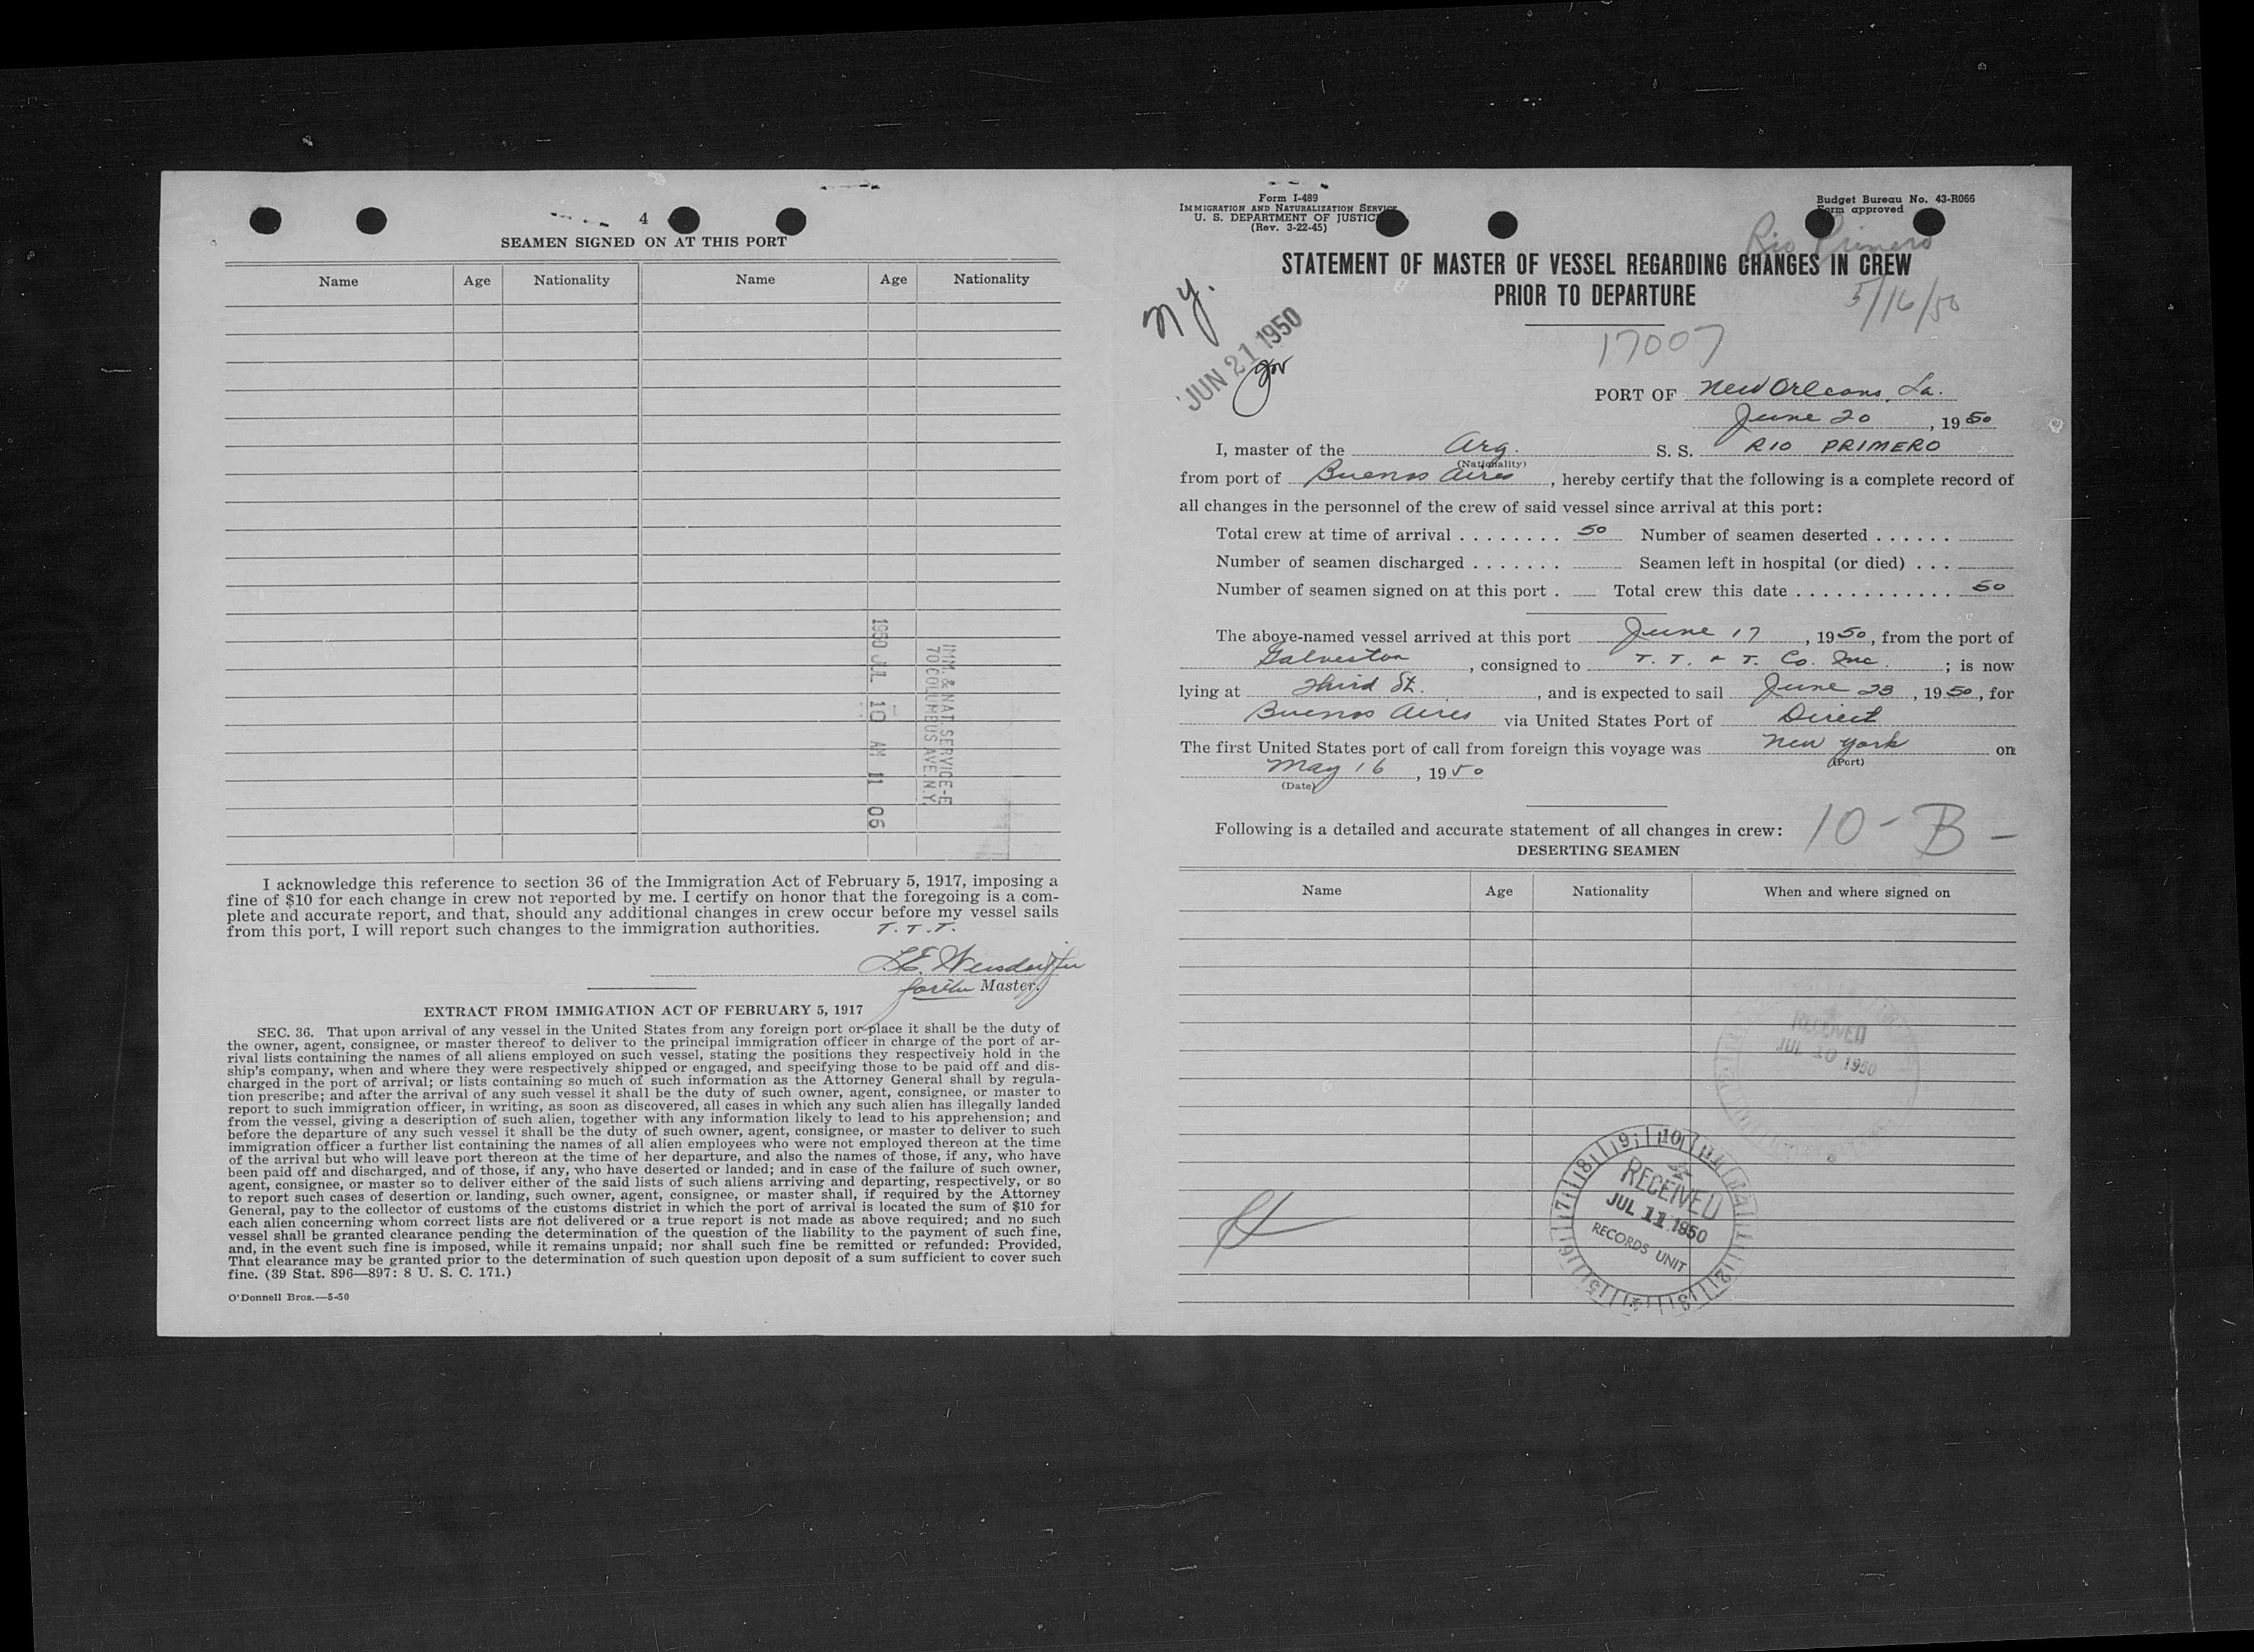 4
SEAMEN SIGNED ON AT THIS PORT
Name Age Nationality Name Age Nationality
1950 JUL 10 AM 11 06
IMM. & NAT. SERVICE-E
70 COLUMBUS AVE N.Y.
I acknowledge this reference to section 36 of the Immigration Act of February 5, 1917, imposing a
fine of $10 for each change in crew not reported by me. I certify on honor that the foregoing is a com-
plete and accurate report, and that, should any additional changes in crew occur before my vessel sails
from this port, I will report such changes to the immigration authorities. T. T. T.
for the Master.
EXTRACT FROM IMMIGATION ACT OF FEBRUARY 5, 1917
SEC. 36. That upon arrival of any vessel in the United States from any foreign port or place it shall be the duty of
the owner, agent, consignee, or master thereof to deliver to the principal immigration officer in charge of the port of ar-
rival lists containing the names of all aliens employed on such vessel, stating the positions they respectively hold in the
ship's company, when and where they were respectively shipped or engaged, and specifying those to be paid off and dis-
charged in the port of arrival; or lists containing so much of such information as the Attorney General shall by regula-
tion prescribe; and after the arrival of any such vessel it shall be the duty of such owner, agent, consignee, or master to
report to such immigration officer, in writing, as soon as discovered, all cases in which any such alien has illegally landed
from the vessel, giving a description of such alien, together with any information likely to lead to his apprehension; and
before the departure of any such vessel it shall be the duty of such owner, agent, consignee, or master to deliver to such
immigration officer a further list containing the names of all alien employees who were not employed thereon at the time
of the arrival but who will leave port thereon at the time of her departure, and also the names of those, if any, who have
been paid off and discharged, and of those, if any, who have deserted or landed; and in case of the failure of such owner,
agent, consignee, or master so to deliver either of the said lists of such aliens arriving and departing, respectively, or so
to report such cases of desertion or landing, such owner, agent, consignee, or master shall, if required by the Attorney
General, pay to the collector of customs of the customs district in which the port of arrival is located the sum of $10 for
each alien concerning whom correct lists are not delivered or a true report is not made as above required; and no such
vessel shall be granted clearance pending the determination of the question of the liability to the payment of such fine,
and, in the event such fine is imposed, while it remains unpaid; nor shall such fine be remitted or refunded: Provided,
That clearance may be granted prior to the determination of such question upon deposit of a sum sufficient to cover such
fine. (39 Stat. 896—897: 8 U. S. C. 171.)
O'Donnell Bros.—5-50
Form I-489
IMMIGRATION AND NATURALIZATION SERVICE
U. S. DEPARTMENT OF JUSTICE
(Rev. 3-22-45)
Budget Bureau No. 43-R066
Form approved
Rio Primero
STATEMENT OF MASTER OF VESSEL REGARDING CHANGES IN CREW
PRIOR TO DEPARTURE
5/16/50
N.Y.
JUN 21 1950
17007
PORT OF New Orleans, La.
June 20, 1950
I, master of the Arg. S. S. RIO PRIMERO
(Nationality)
from port of Buenos Aires, hereby certify that the following is a complete record of
all changes in the personnel of the crew of said vessel since arrival at this port:
Total crew at time of arrival ........ 50 Number of seamen deserted ......
Number of seamen discharged ....... Seamen left in hospital (or died) ...
Number of seamen signed on at this port . Total crew this date ............ 50
The above-named vessel arrived at this port June 17, 1950, from the port of
Galveston, consigned to T. T. & T. Co. Inc.; is now
lying at Third St., and is expected to sail June 23, 1950, for
Buenos Aires via United States Port of Direct
The first United States port of call from foreign this voyage was New York on
(Port)
May 16, 1950
(Date)
Following is a detailed and accurate statement of all changes in crew: 10-B-
DESERTING SEAMEN
Name Age Nationality When and where signed on
RECEIVED
JUL 10 1950
RECEIVED
JUL 11 1950
RECORDS UNIT